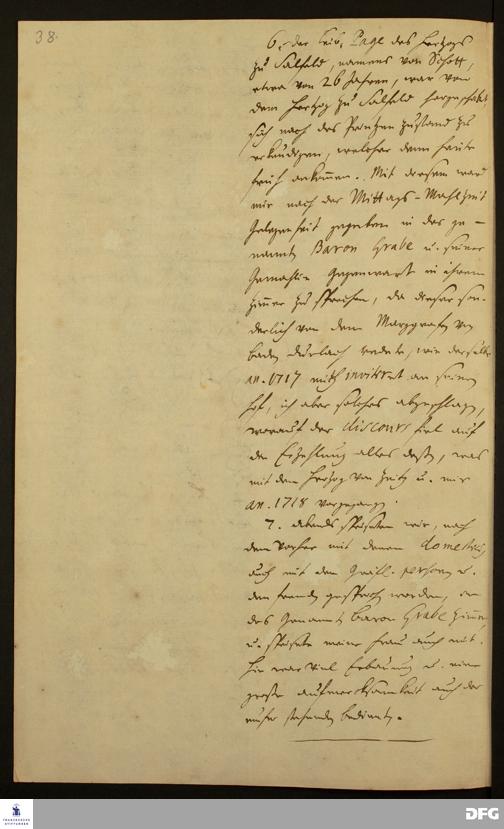 38.
6. der Leib-Page des Hertzogs
zu Salfeld, namens von Schott,
etwa von 26 Jahren, war von
dem Hertzog zu Salfeld hergeschickt
sich nach des Printzen Zustand zu
erkundigen, welcher denn heute
früh ankommen. Mit diesem ward
mir nach der Mittags-Mahlzeit
Gelegenheit gegeben in des ge-
nannten Baron Grabe u. seiner
Gemahlin Gegenwart in ihrem
Zimmer zu sprechen, da dieser son-
derlich von dem Marggrafen von
Baden Durlach redete, wie derselbe
an. 1717 mich invitiret an seinen
Hof, ich aber solches abgeschlagen,
worauf der discours fiel auf
die Erzehlung alles deßen, was
mit dem Hertzog von Zeitz u. mir
an. 1718 vorgegangen.
7. Abends speiseten wir, nach
dem vorher mit denen domestiquen
auch mit den Gräfl. Personen u.
den fremden gesprochen worden, in
des Genannten Baron Grabe Zimmer,
u. speisete meine Frau auch mit.
Hie war viel Erbauung u. eine
große aufmercksamkeit auch der
umher stehenden bedienten.
FRANCKESCHE
STIFTUNGEN
DFG